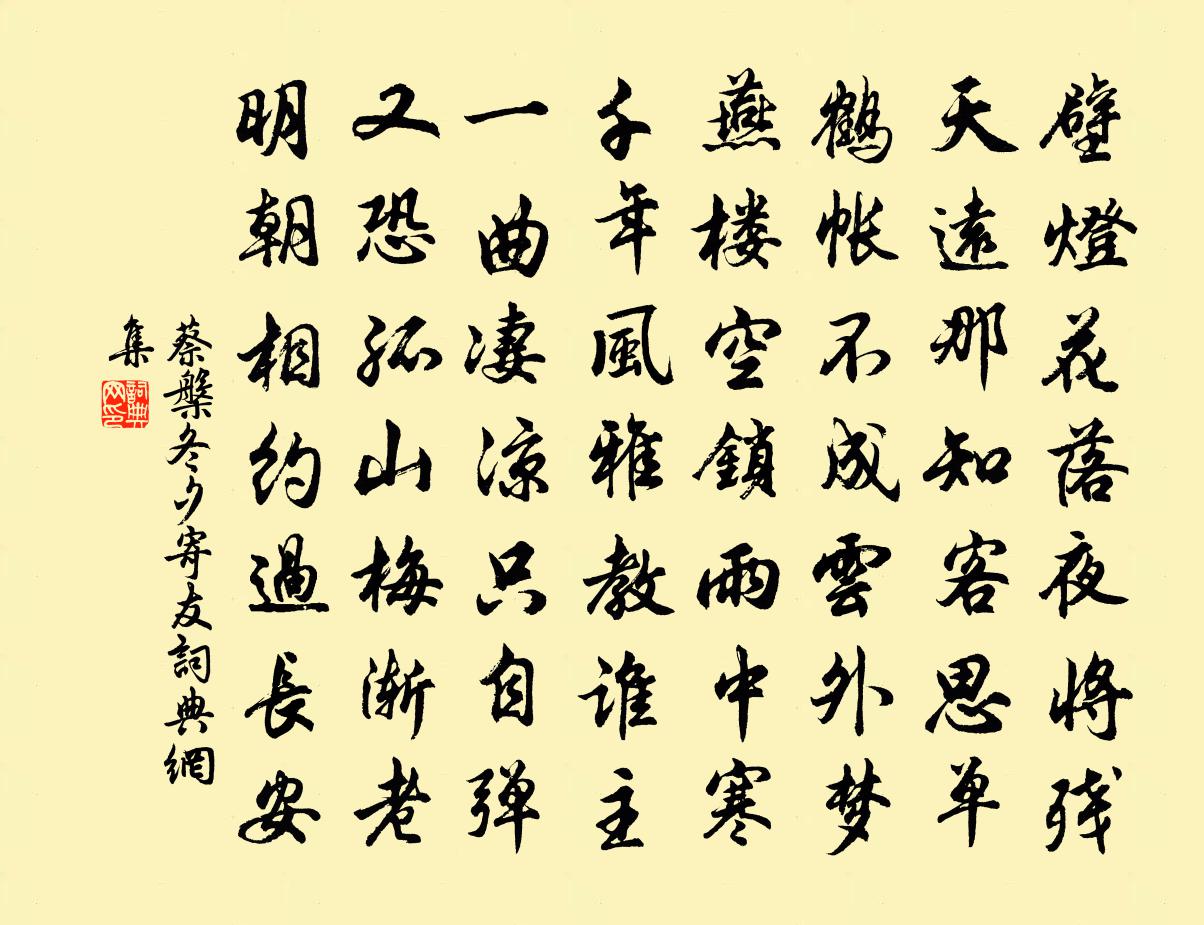 壁燈花落夜將残
天遠那知客思单
鶴帐不成雲外梦
燕楼空鎖雨中寒
千年風雅教誰主
一曲凄凉只自弹
又恐孤山梅渐老
明朝相約過長安
蔡槃冬夕寄友詞典網
集
詞典
网印